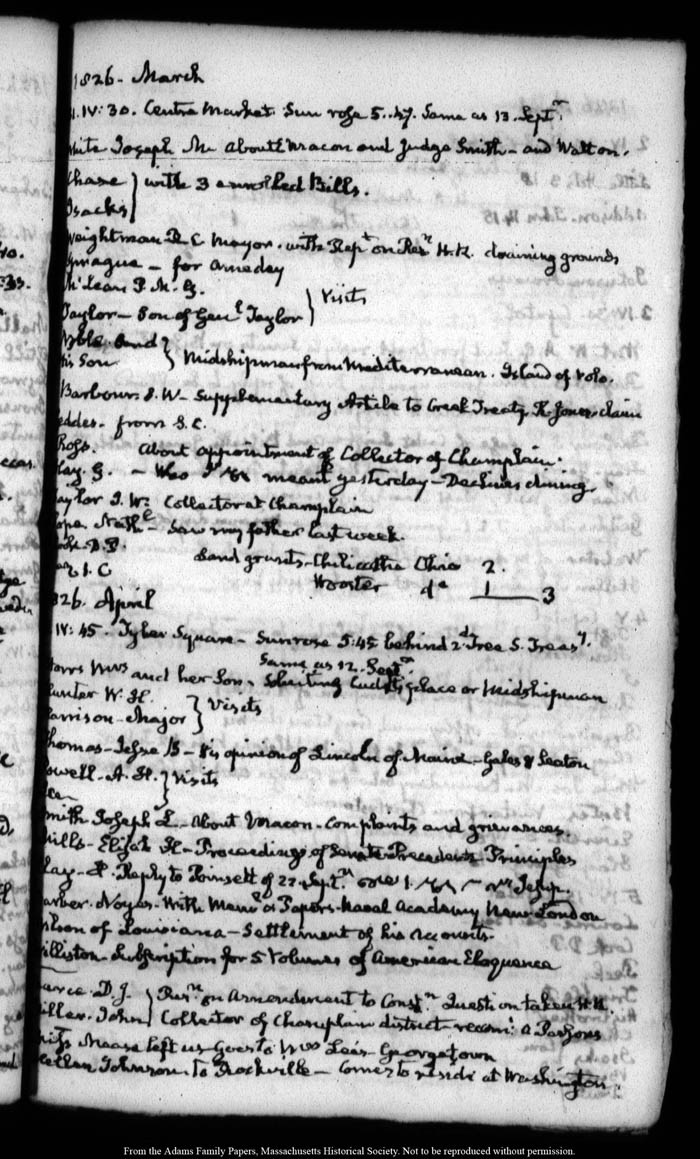 1826. March
IV:30. Centre Market. Sun rose 5..47. Same as 13. Septr.
White Joseph M. about Macon and Judge Smith - and Walton.
Chase } with 3 enrolled Bills.
Isacks
Weightman D.C. Mayor. with Rept on Resn H.R. draining grounds
Sprague - for Ameday
McLean P. M. G. } Visits
Taylor - Son of Genl Taylor
Noble and } Midshipman from Mediterranean. Island of
his Son
Barbour. S. W - Supplementary Article to Creek Treaty. R Jones. claim
from S.C.
about appointment of Collector of Champlain.
Clay. H. - meant yesterday - Declines dining.
Taylor J. W. Collector at Champlain
Nathl - Saw my father last week.
Land grants - Chilicothe Ohio 2.
Wooster do 1 3
1826. April
IV: 45. Tyber Square - Sunrose 5:45 behind 2d Tree S. Treasy.
Same as 12. Septr.
Mrs and her Son. Soliciting Cadet's place or Midshipman
Hunter W. H. } Visits
Harrison - Major
Thomas - Jesse B - his opinion of Lincoln of Maine - Gales & Seaton
A. H. } Visits
Smith Joseph L. - about Macon - Complaints and grievances.
Mills - Elijah H - Proceedings of Senate Precedents Principles
Clay - H. Reply to Poinsett of 22. Septr.
Barber. Noyes. With Meml & Papers. Naval Academy New London
of Louisiana - Settlement of his Accounts.
Williston - Subscription for 5 Volumes of American Eloquence
Pearce. D. J. } Resn on Amendment to Constn. Question taken H.R.
Miller. John Collector of Champlain district - recom: a Parsons
Miss left us - Goes to Mrs Lee's Georgetown
Johnson to Rockville - Comes to reside at Washington.
From the Adams Family Papers, Massachusetts Historical Society. Not to be reproduced without permission.